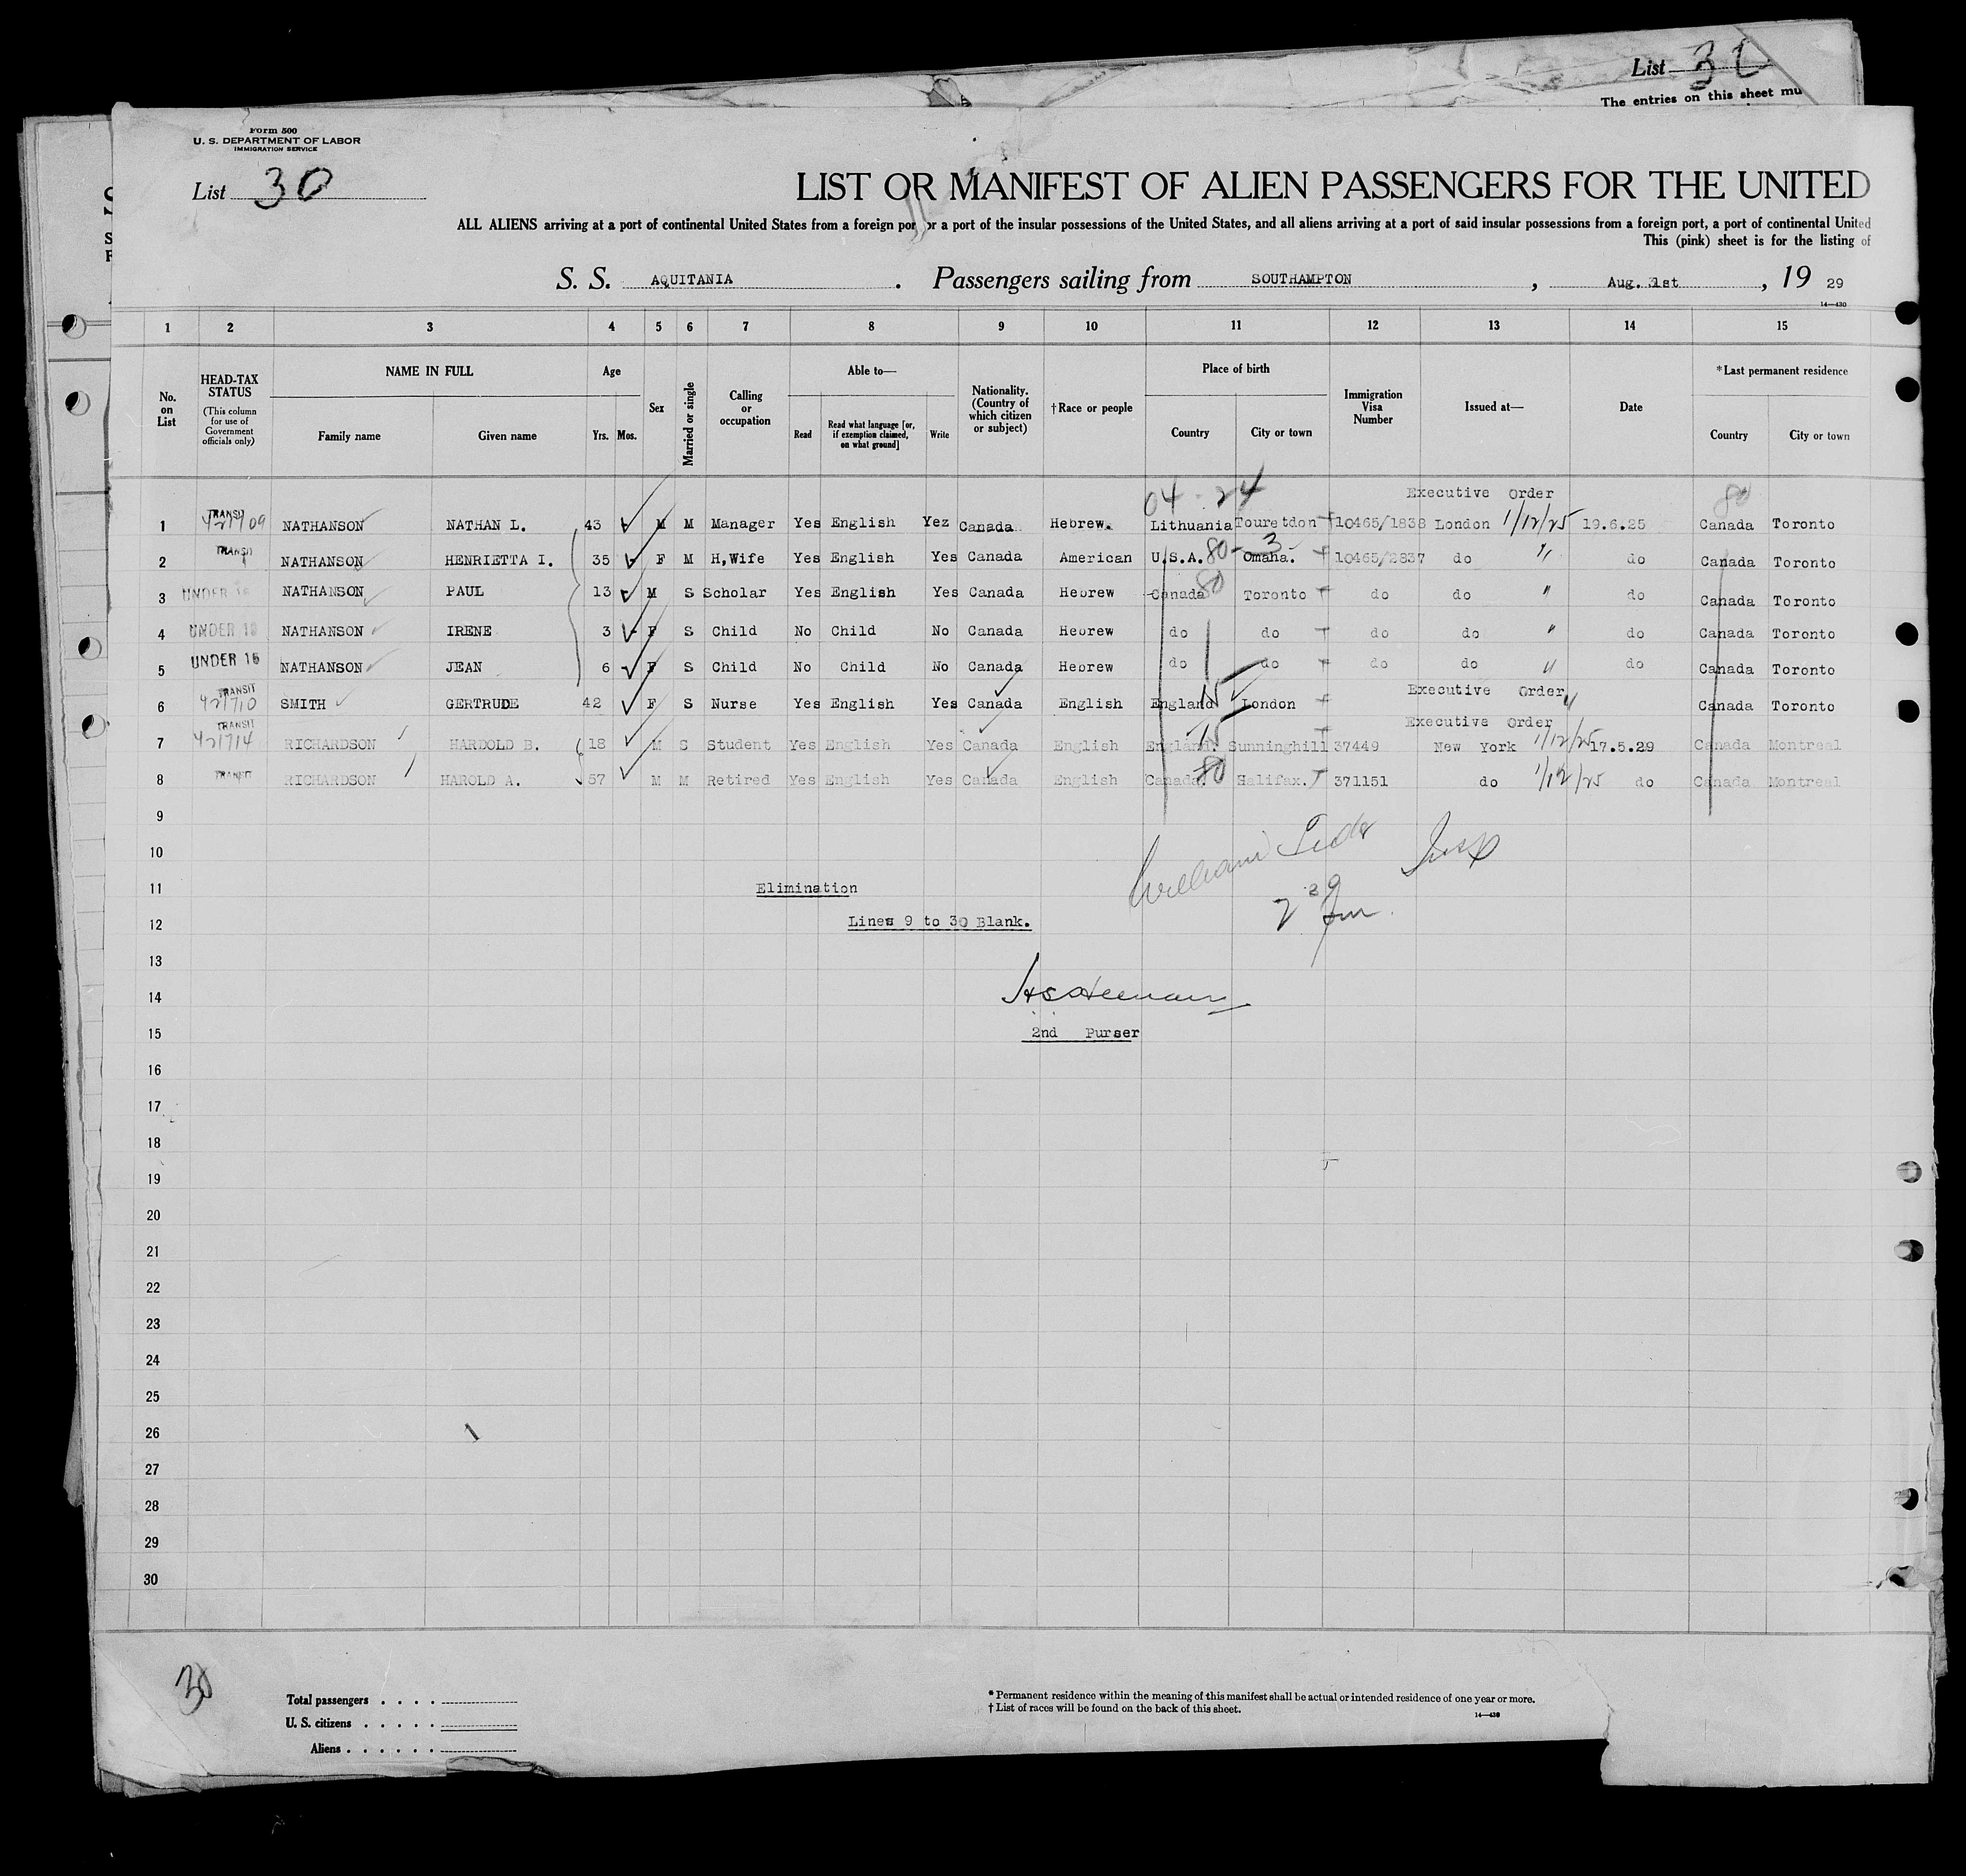 List 3
The entries on this sheet mu
Form 500
U. S. DEPARTMENT OF LABOR
IMMIGRATION SERVICE
List 30
LIST OR MANIFEST OF ALIEN PASSENGERS FOR THE UNITED
ALL ALIENS arriving at a port of continental United States from a foreign port or a port of the insular possessions of the United States, and all aliens arriving at a port of said insular possessions from a foreign port, a port of continental United
This (pink) sheet is for the listing of
S. S. AQUITANIA . Passengers sailing from SOUTHAMPTON , Aug. 31st , 19 29
14—430
1 2 3 4 5 6 7 8 9 10 11 12 13 14 15
No. on List HEAD-TAX STATUS (This column for use of Government officials only) NAME IN FULL Family name Given name Age Yrs. Mos. Sex Married or single Calling or occupation Able to— Read Read what language [or, if exemption claimed, on what ground] Write Nationality. (Country of which citizen or subject) †Race or people Place of birth Country City or town Immigration Visa Number Issued at— Date *Last permanent residence Country City or town
04 24 Executive Order 80
1 TRANSIT 421709 NATHANSON NATHAN L. 43 M M Manager Yes English Yez Canada Hebrew. Lithuania Touretdon 10465/1838 London 1/12/25 19.6.25 Canada Toronto
2 TRANSIT NATHANSON HENRIETTA I. 35 F M H,Wife Yes English Yes Canada American U.S.A. 80-3 Omaha. 10465/2837 do " do Canada Toronto
3 UNDER 16 NATHANSON PAUL 13 M S Scholar Yes English Yes Canada Hebrew Canada 80 Toronto do do " do Canada Toronto
4 UNDER 16 NATHANSON IRENE 3 F S Child No Child No Canada Hebrew do do do do " do Canada Toronto
5 UNDER 16 NATHANSON JEAN 6 F S Child No Child No Canada Hebrew do do do do " do Canada Toronto
Executive Order
6 TRANSIT 421710 SMITH GERTRUDE 42 F S Nurse Yes English Yes Canada English England 15 London " Canada Toronto
Executive Order
7 TRANSIT 421714 RICHARDSON HARDOLD B. 18 M S Student Yes English Yes Canada English England. 15 Sunninghill 37449 New York 1/12/25 17.5.29 Canada Montreal
8 TRANSIT RICHARDSON HAROLD A. 57 M M Retired Yes English Yes Canada English Canada. 80 Halifax. 371151 do 1/12/25 do Canada Montreal
9
10 William Insp
11 Elimination
12 Lines 9 to 30 Blank.
13
14
15 2nd Purser
16
17
18
19
20
21
22
23
24
25
26
27
28
29
30
30
Total passengers . . . .
U. S. citizens . . . . .
Aliens . . . . . .
* Permanent residence within the meaning of this manifest shall be actual or intended residence of one year or more.
† List of races will be found on the back of this sheet.
14—430